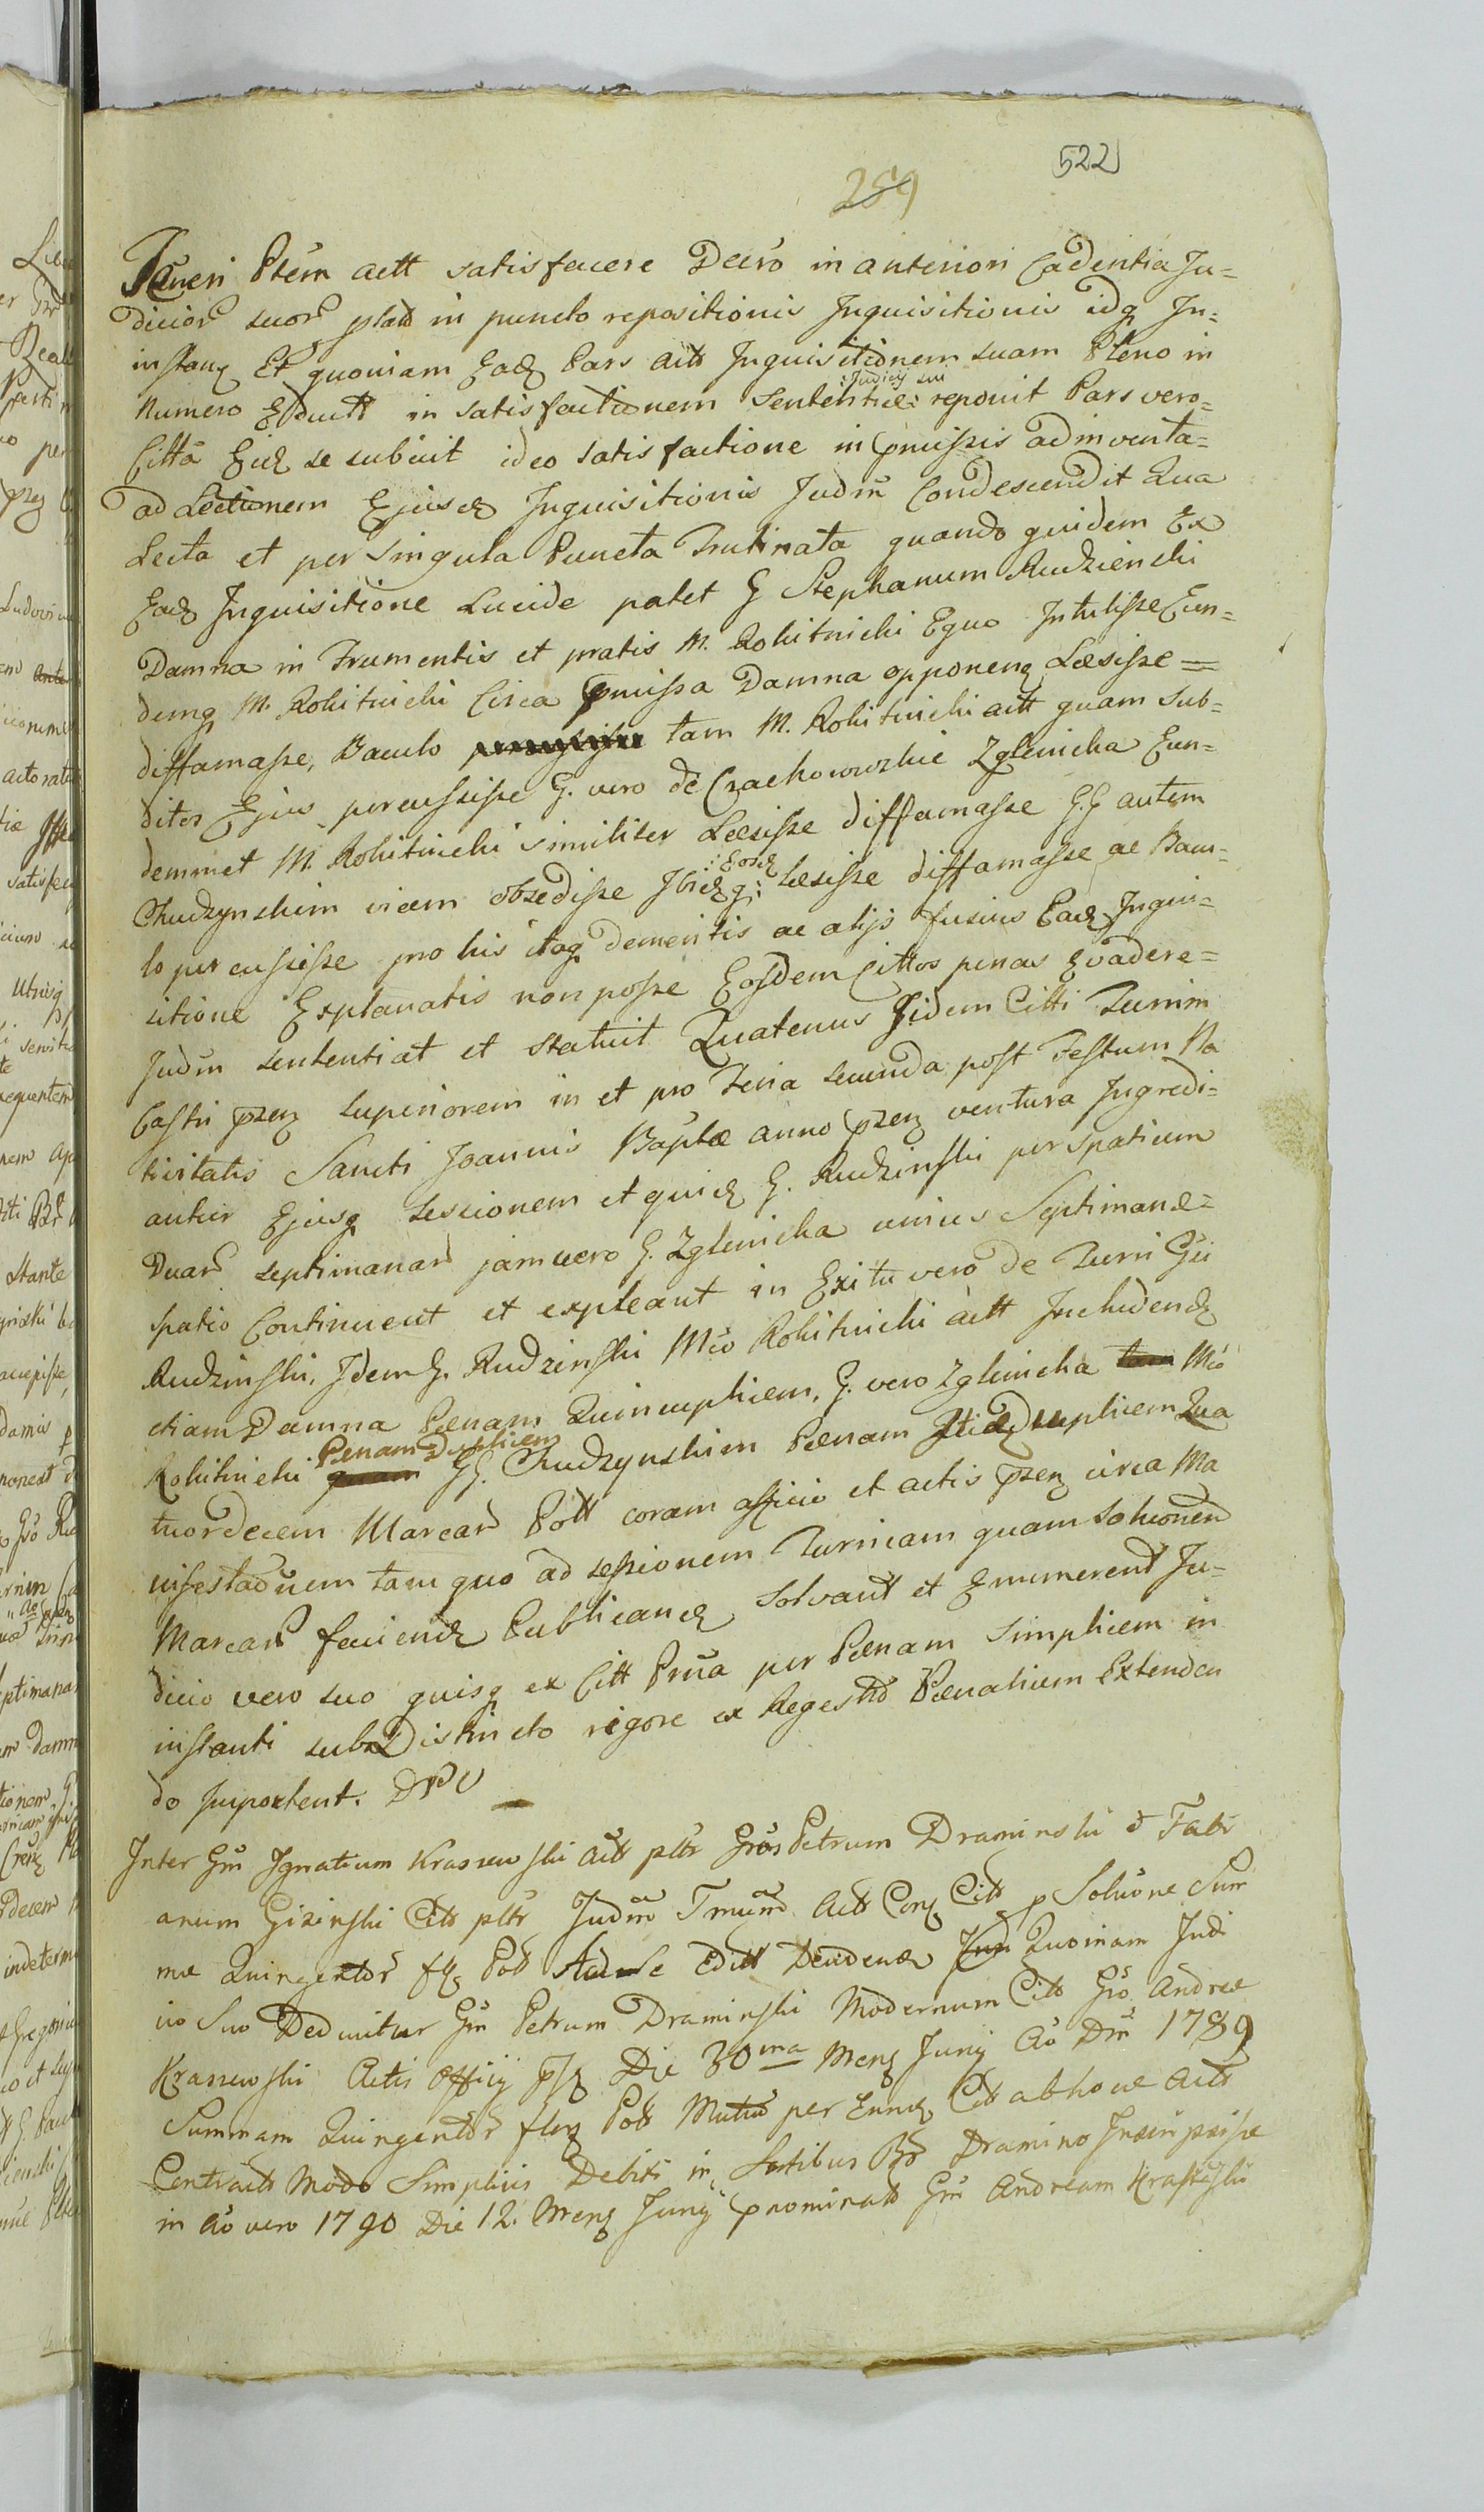 522
289
Teneri Ptem actt satisfacere Decro in anteriori Cadentia Ju=
dicior suor plato in puncto repositionis Inquisitionis idq In=
instanq Et quoniam Eadq Pars actt Inquisitionem suam Pleno in
Numero Educti in satisfactionem Sententiæ :Judicij sui: reponit Pars vero=
Citta Eidq se subicit ideo satisfactione in pmissis adinventa=
ad Lectionem Ejusdq Inquisitionis Judm Condescendit Qua
Lecta et per Singula Puncta Trutinata quando quidem Ex
Eadq Inquisitione Lucide patet G Stephanum Rudzienski
Damna in Frumentis et pratis M. Rokitnicki Equo Intulisse Eun=
demq M. Rokitnicki Circa pmissa Damna opponenq Læsisse=
diffamasse, Baculo tam M. Rokitnicki actt quam sub=
ditos Ejus percussisse G. vero de Czachowwskie Zglenicka Eun=
demmet M. Rokitnicki similiter Læsisse diffamasse G.G autem
Chudzynskim viam obsedisse Ibidq :Eosdq: læsisse diffamasse ac Bacu=
lo percussisse pro his itaq dementis ac alijs fusius Eadq Inqui=
sitione Explanatis non posse Eosdem Cittos penas Evadere=
Judm sententiat et statuit Quatenus Iidem Citti Turrim
Castri pzenq superiorem in et pro Feria secunda post Festum Na
tivitatis Sancti Joannis Baptæ anno pzenq ventura Ingredi=
antur Ejusq sessionem et quidq G. Rudzinski per spatium
Duar septimanar jam vero G. Zglenicka unius Septimanæ=
spatio Continuent et expleant in Exitu vero de Turri Gsi
Rudzinski, Idem G. Rudzinski Mco Rokitnicki actt Includendq
etiam Damna Pænam Quincuplicem, G. vero Zglenicka tam Mco
Rokitnicki quam Pænam Duplicem GG. Chudzynskim Pænam Itidq Duplicem Qua
tuordecem Marcar Poll coram officio et actis pzenq circa Ma
nifestaonem tam quo ad sessionem Turricam quam solutionem
Marcar faciendq Publicandq Solvant et Enumerent Ju=
dicio vero suo quisq ex Citt Prua per Pænam Simplicem in
instanti sub Distincto rigore ex Regestro Pænalium Extenden
do Importent. DPU
Inter Gm Ignatium Krassewski actt pltr Gros Petrum Draminski & Fabi
anum Gizinski Citt pltr Judm Tmum Actt Conq Citt p Solutione Sum
mæ Quingentor flq Poll Ad Se Editt Dendenq Jud Quoniam Judi
cio Suo Deducitur Gm Petrum Draminski Modernum Citt Gso Andreæ
Krassewski Actis Officij psq Die 30ma Menq Junij Ao Dni 1789
Summam Quingentor flor Poll Mutuo per Eundq Citt abhocce Actt
Contracti Modo Simplicis Debiti in Sortibus Br Dramino Inscripsisse
in Ao vero 1790 Die 12. Menq Junij pnominatt Gm Andream Krassewski